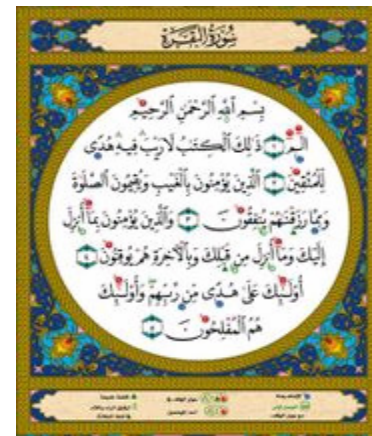 سُورَةُ البَقَرَةِ
بِسْمِ ٱللَّهِ ٱلرَّحْمَٰنِ ٱلرَّحِيمِ
الٓمٓ ١ ذَٰلِكَ ٱلْكِتَٰبُ لَا رَيْبَ ۛ فِيهِ ۛ هُدًى
لِّلْمُتَّقِينَ ٢ ٱلَّذِينَ يُؤْمِنُونَ بِٱلْغَيْبِ وَيُقِيمُونَ ٱلصَّلَوٰةَ
وَمِمَّا رَزَقْنَٰهُمْ يُنفِقُونَ ٣ وَٱلَّذِينَ يُؤْمِنُونَ بِمَآ أُنزِلَ
إِلَيْكَ وَمَآ أُنزِلَ مِن قَبْلِكَ وَبِٱلْءَاخِرَةِ هُمْ يُوقِنُونَ ٤
أُو۟لَٰٓئِكَ عَلَىٰ هُدًى مِّن رَّبِّهِمْ وَأُو۟لَٰٓئِكَ
هُمُ ٱلْمُفْلِحُونَ ٥